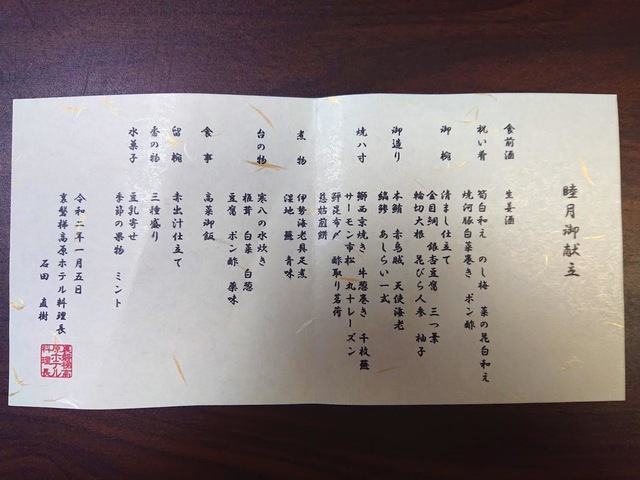 睦月御献立
食前酒　生姜酒
祝い肴　筍白和え　のし梅　菜の花白和え
焼河豚白菜巻き　ポン酢
御椀　清まし仕立て
金目鯛　銀杏豆腐　三つ葉
輪切大根　花びら人参　柚子
御造り　本鮪　赤烏賊　天使海老
縞鯵　あしらい一式
焼八寸　鰤西京焼き　牛葱巻き　千枚蕪
サーモン市松　丸十レーズン
鮃昆布〆　酢取り茗荷
慈姑煎餅
煮物　伊勢海老具足煮
湿地　蕪　青味
台の物　寒八の水炊き
椎茸　白菜　白葱
豆腐　ポン酢　薬味
食事　高菜御飯
留椀　赤出汁仕立て
香の物　三種盛り
水菓子　豆乳寄せ
季節の果物　ミント
令和二年一月五日
裏磐梯高原ホテル料理長
石田　直樹
裏磐梯高
原ホテル
料理長